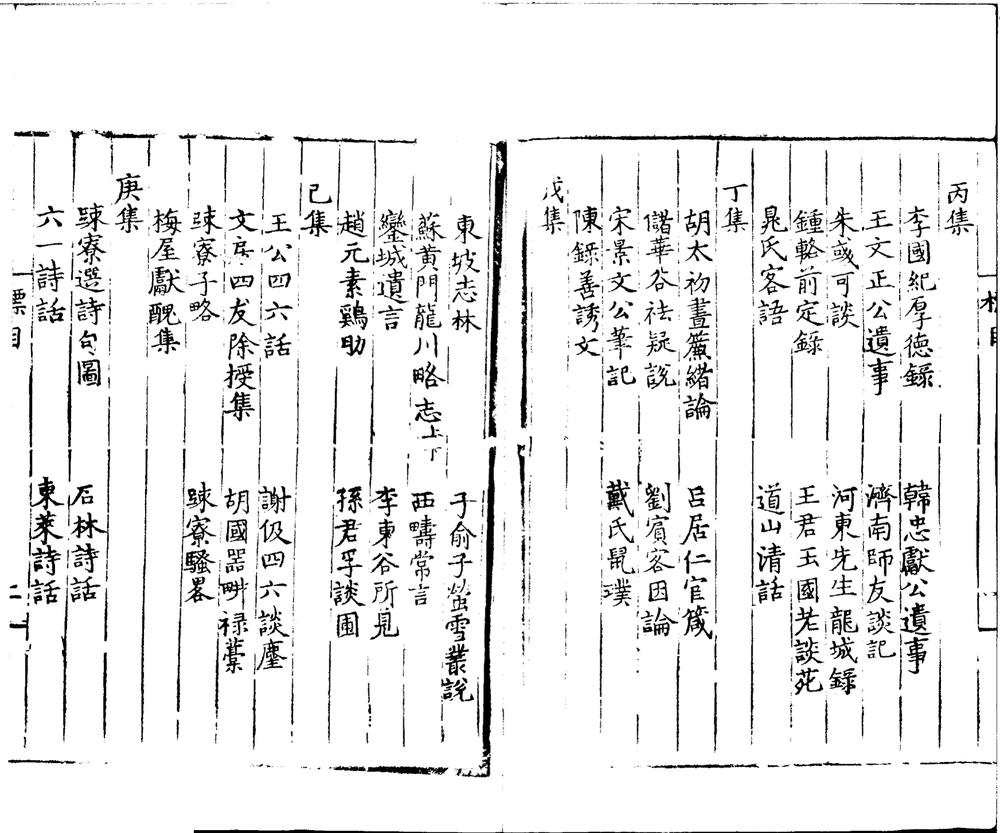 丙集
李國紀厚德錄 韓忠獻公遺事
王文正公遺事 濟南師友談記
朱彧可談 河東先生龍城錄
鍾輅前定錄 王君玉國老談苑
晁氏客語 道山清話
丁集
胡太初晝簾緒論 呂居仁官箴
儲華谷祛疑說 劉賓客因論
宋景文公筆記 戴氏鼠璞
陳錄善誘文
戊集
東坡志林 子俞子螢雪叢說
蘇黃門龍川略志上下 西疇常言
欒城遺言 李東谷所見
趙元素雞助 孫君孚談圃
己集
王公四六話 謝伋四六談麈
文房四友除授集 胡國器耕祿藁
踈寮子略 踈寮騷畧
梅屋獻醜集
庚集
踈寮選詩句圖 石林詩話
六一詩話 東萊詩話
標目
二